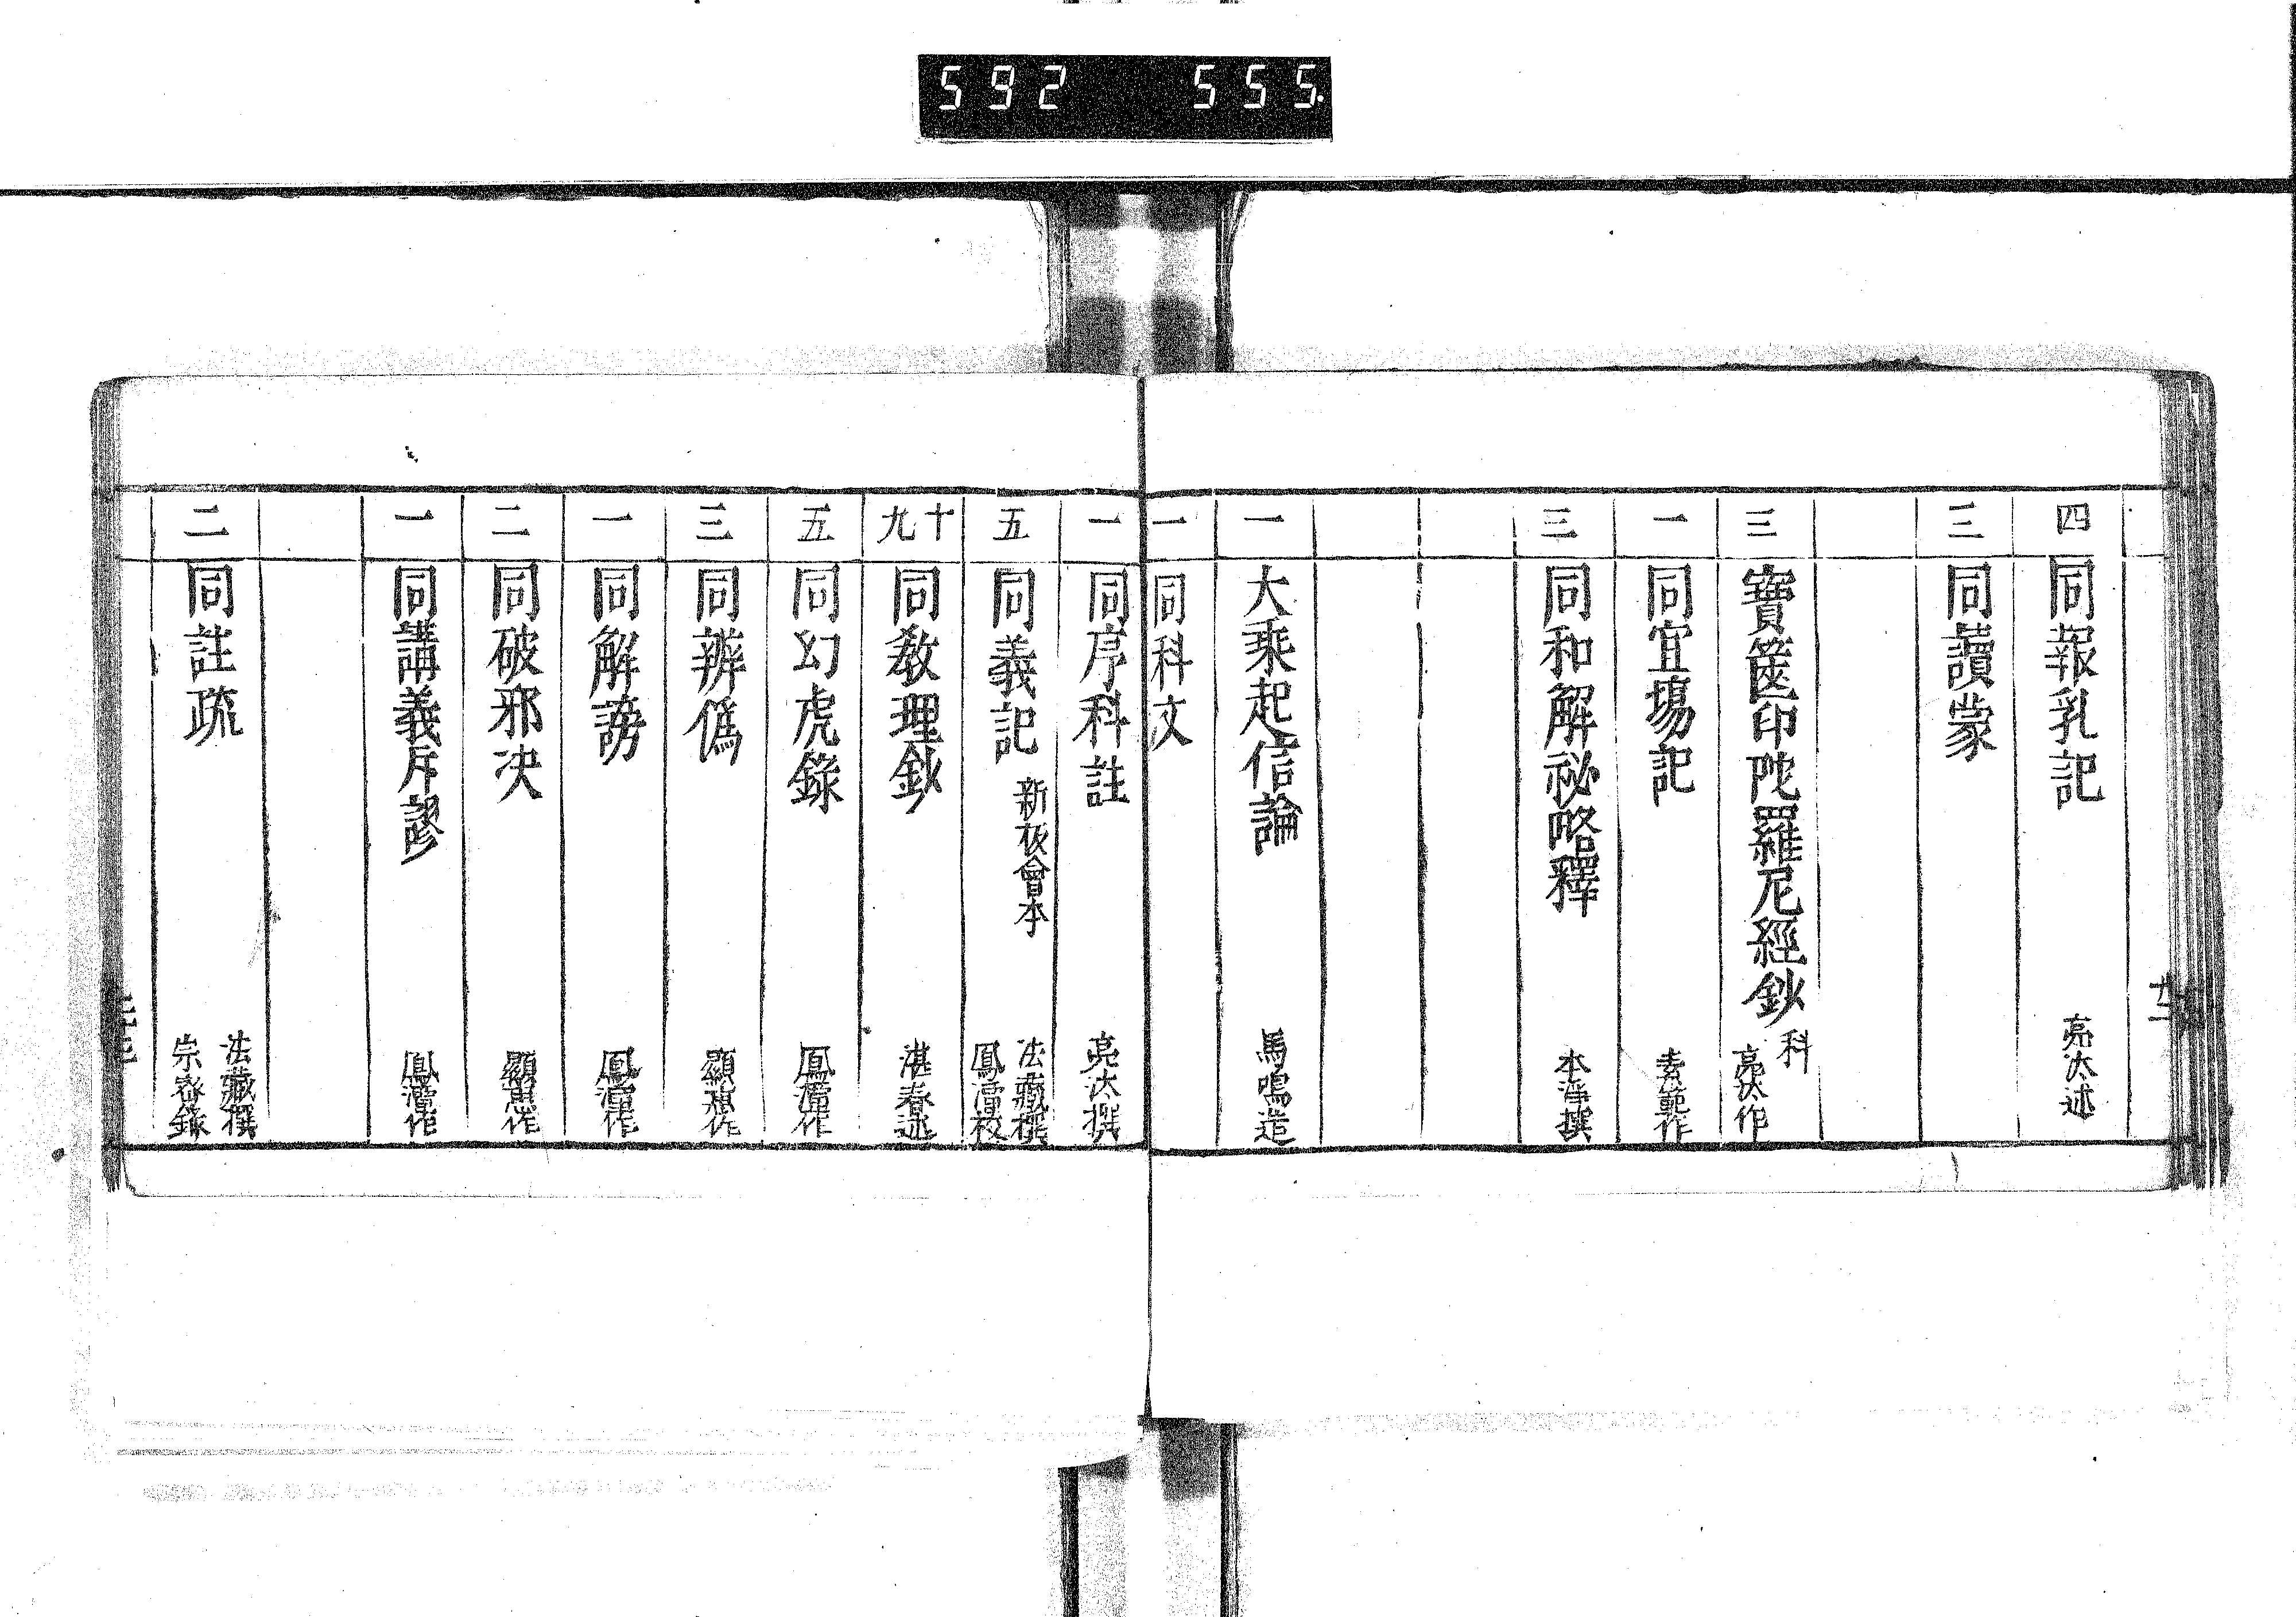 592 555.
四 同報乳記 亮汰述
三 同讀蒙
三 寶篋印陀羅尼經鈔 科 亮汰作
一 同宜場記 素範作
三 同和解祕略釋 本淨撰
一 大乘起信論 馬鳴造
一 同科文
一 同序科註 亮汰撰
五 同義記 新板會本 法藏撰 鳳潭校
十九 同教理鈔 湛春述
五 同幻虎錄 鳳潭作
三 同辨僞 顯慧作
一 同解謗 鳳潭作
二 同破邪决 顯慧作
一 同講義斥謬 鳳潭作
二 同註疏 法藏撰 宗密錄